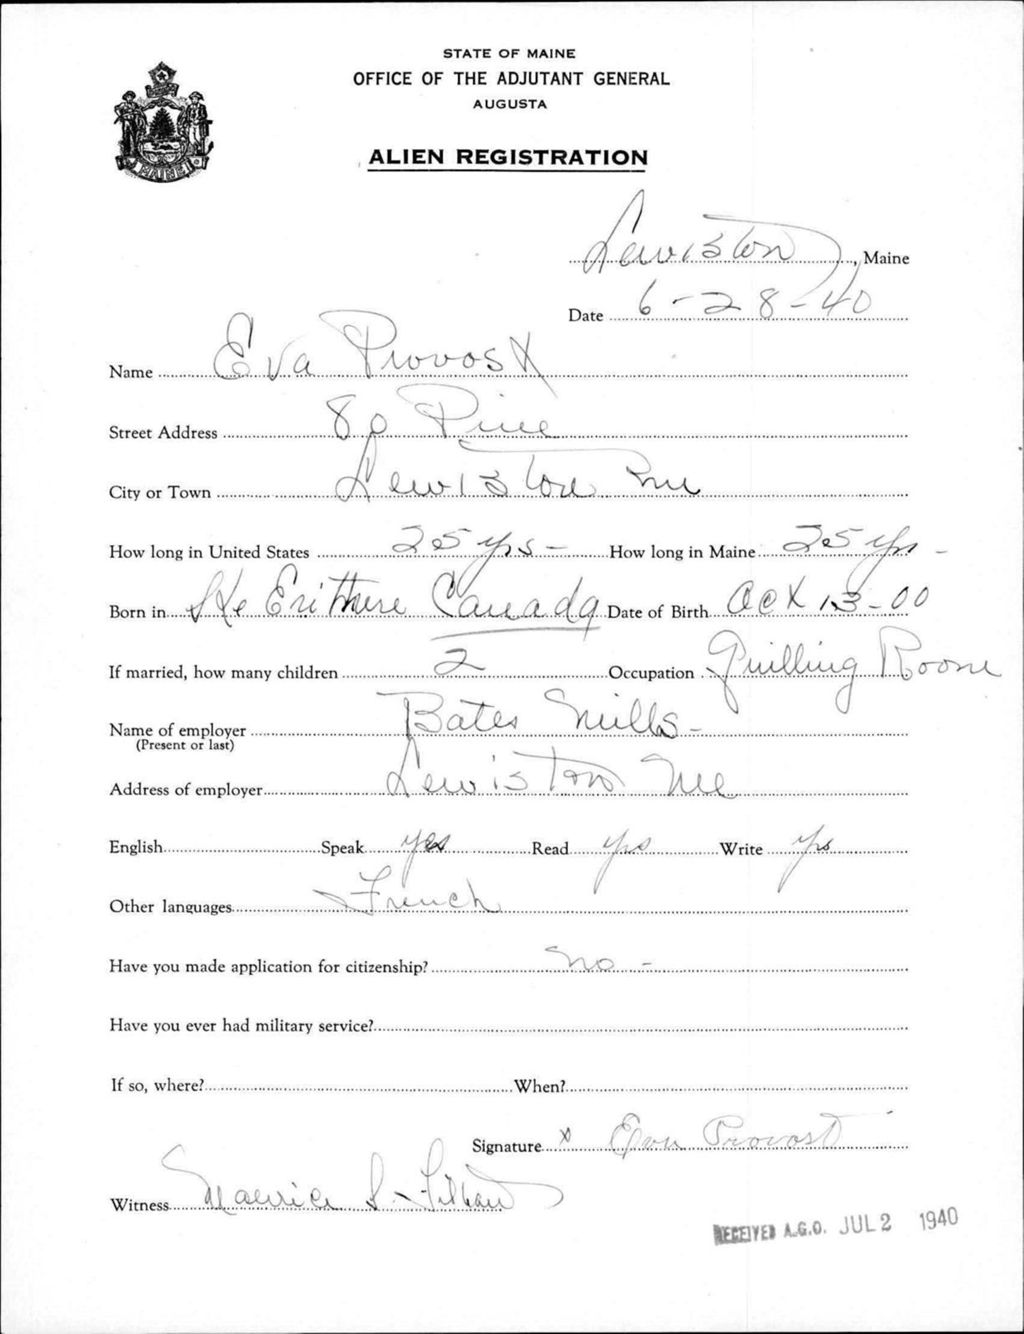 STATE OF MAINE
OFFICE OF THE ADJUTANT GENERAL
AUGUSTA
ALIEN REGISTRATION
MAINE
Lewiston, Maine
Date 6-28-40
Name Eva Provost
Street Address Pine
City or Town Lewiston Me
How long in United States 25 yrs- How long in Maine 25 yrs-
Born in Canada Date of Birth Oct 13-00
If married, how many children 2 Occupation Quilling Room
Name of employer Bates Mills-
(Present or last)
Address of employer Lewiston Me
English Speak yes Read yes Write yes
Other languages French
Have you made application for citizenship? No-
Have you ever had military service?
If so, where? When?
Signature x Eva Provost
Witness Maurice
RECEIVED A.G.O. JUL 2 1940